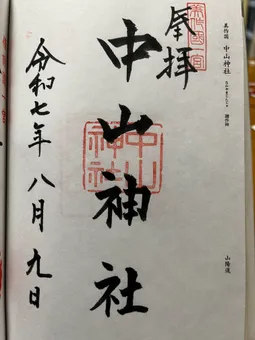 美作国 中山神社
山陽道
奉拝
美作國一宮
中山神社
中山
神社
令和七年八月九日